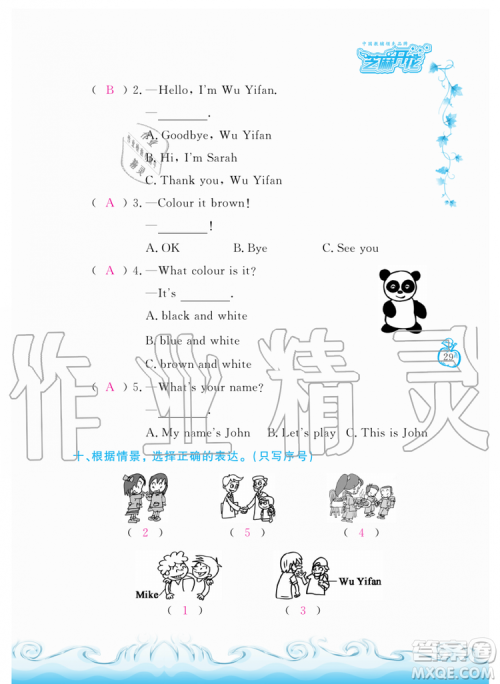 芝麻开花
( B ) 2. —Hello, I'm Wu Yifan.
—________.
A. Goodbye, Wu Yifan
B. Hi, I'm Sarah
C. Thank you, Wu Yifan
( A ) 3. —Colour it brown!
—________!
A. OK B. Bye C. See you
( A ) 4. —What colour is it?
—It's ________.
A. black and white
B. blue and white
C. brown and white
29
( A ) 5. —What's your name?
—________.
A. My name's John B. Let's play C. This is John
十、根据情景，选择正确的表达。(只写序号)
( 2 ) ( 5 ) ( 4 )
Mike Wu Yifan
( 1 ) ( 3 )
作业精灵
答案圈
MXQE.COM